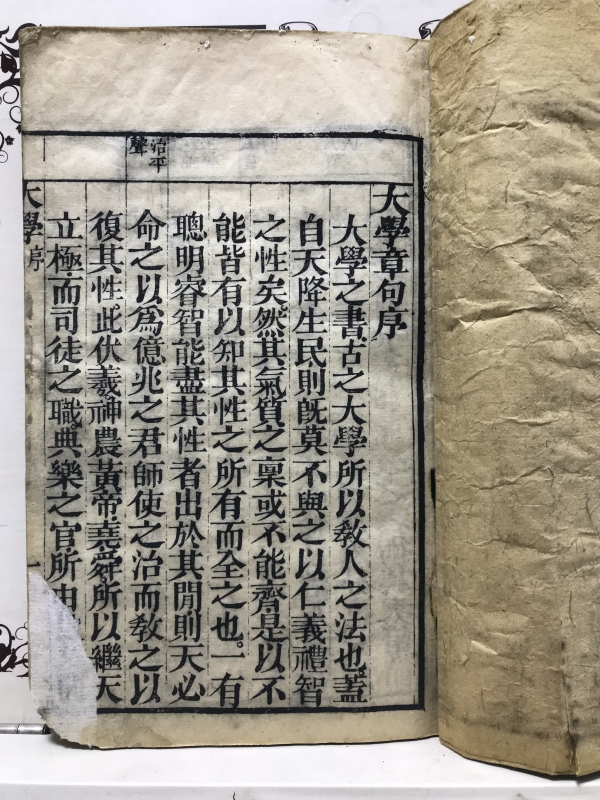 大學章句序
大學之書古之大學所以敎人之法也。蓋
自天降生民則旣莫不與之以仁義禮智
之性矣。然其氣質之稟或不能齊。是以不
能皆有以知其性之所有而全之也。一有
聰明睿智能盡其性者出於其閒則天必
命之以爲億兆之君師使之治而敎之以
復其性。此伏羲。神農。黃帝。堯。舜。所以繼天
立極。而司徒之職。典樂之官。所由
治平
聲
大學 序
一